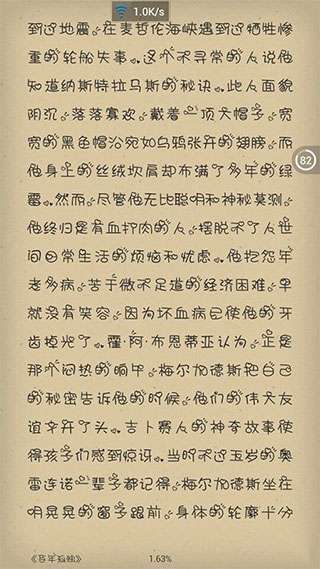 1.0K/s
到过地震。在麦哲伦海峡遇到过牺牲惨
重的轮船失事。这个不寻常的人说他
知道纳斯特拉马斯的秘诀。此人面貌
阴沉，落落寡欢，戴着一顶大帽子，宽
宽的黑色帽沿宛如乌鸦张开的翅膀，而
他身上的丝绒坎肩却布满了多年的绿
霉。然而，尽管他无比聪明和神秘莫测，
他终归是有血打肉的人，摆脱不了人世
间日常生活的烦恼和忧虑。他抱怨年
老多病，苦于微不足道的经济困难，早
就没有笑容，因为坏血病已使他的牙
齿掉光了。霍·阿·布恩蒂亚认为，正是
那个闷热的晌午，梅尔加德斯把自己
的秘密告诉他的时候，他们的伟大友
谊才开了头。吉卜赛人的神奇故事使
得孩子们感到惊讶。当时不过五岁的奥
雷连诺一辈子都记得，梅尔加德斯坐在
明晃晃的窗子跟前，身体的轮廓十分
82
《百年孤独》 1.63%